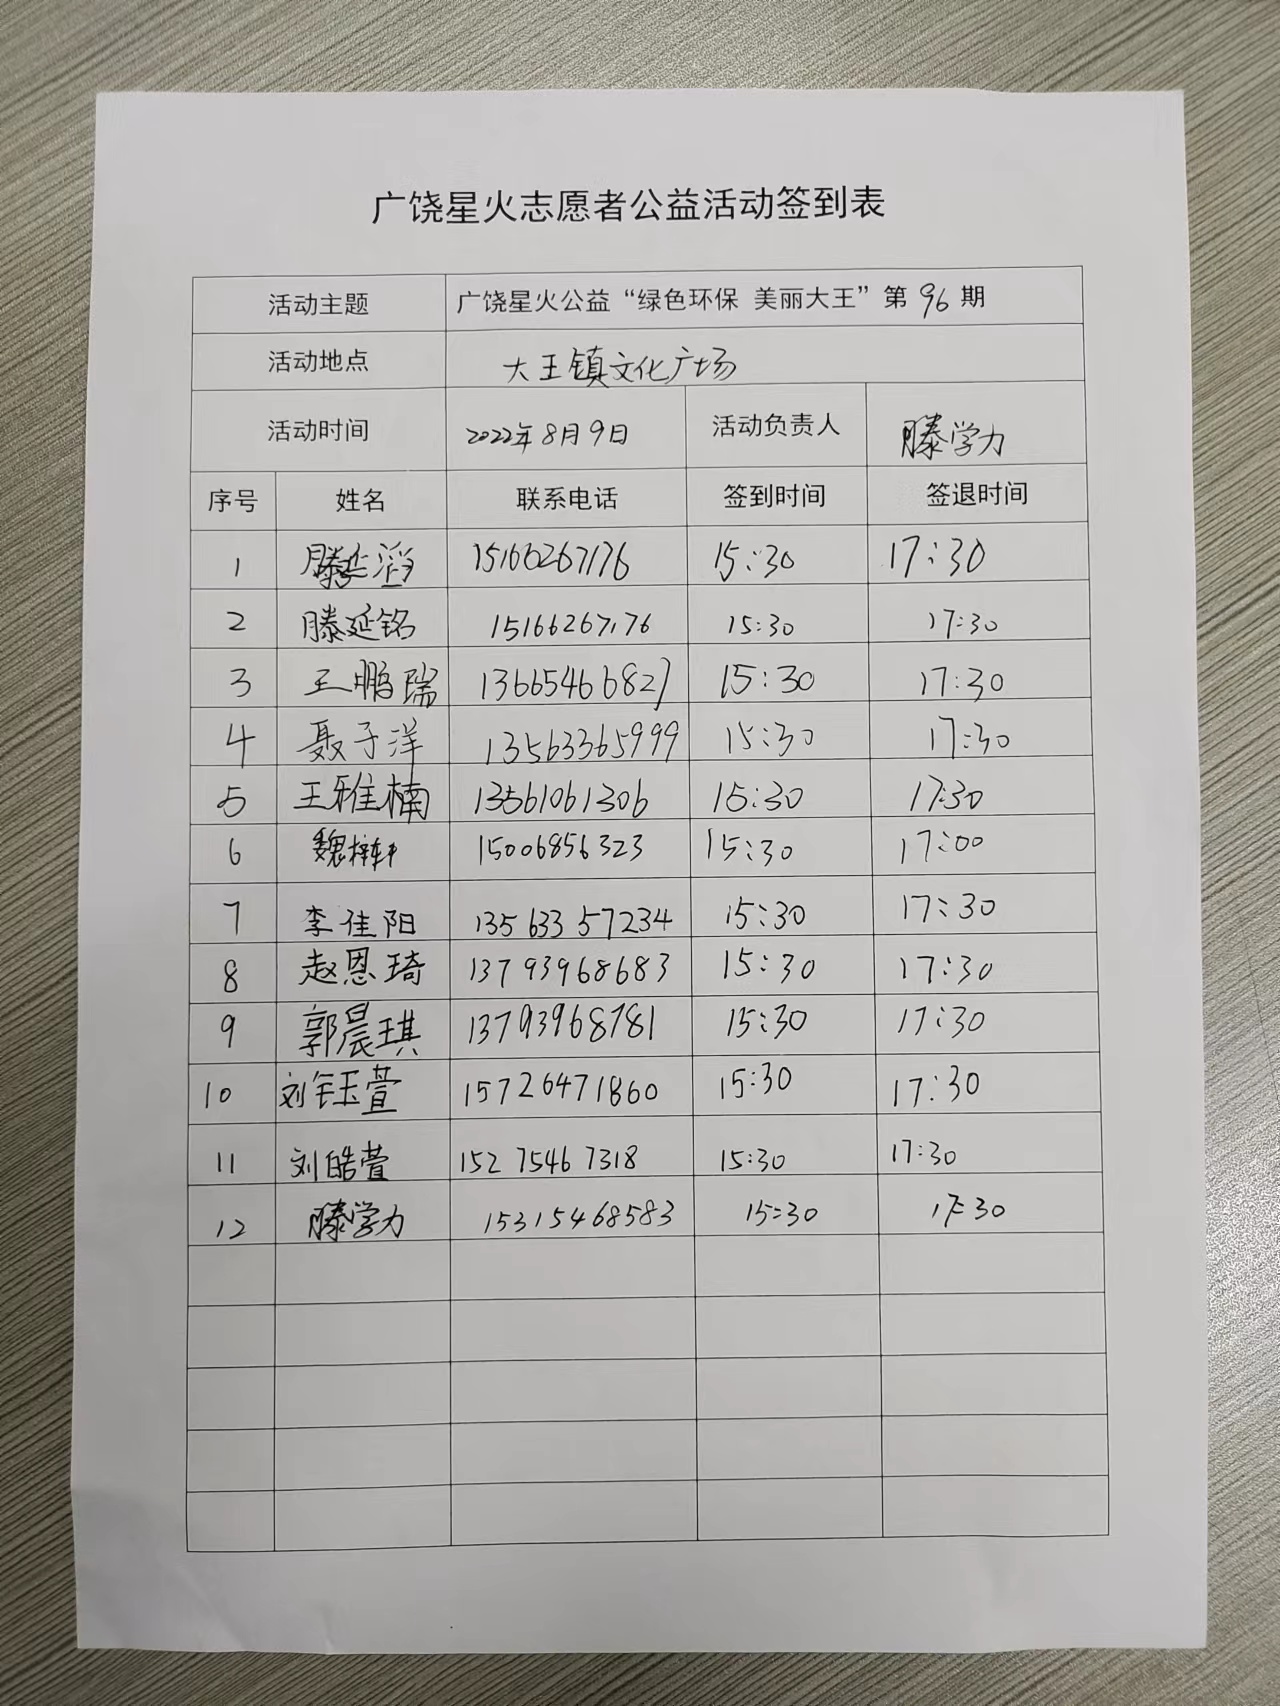 广饶星火志愿者公益活动签到表
活动主题 广饶星火公益“绿色环保 美丽大王”第 96 期
活动地点 大王镇文化广场
活动时间 2022年8月9日 活动负责人 滕学力
序号 姓名 联系电话 签到时间 签退时间
1 滕延滔 15166267176 15:30 17:30
2 滕延铭 15166267176 15:30 17:30
3 王鹏瑞 13665466827 15:30 17:30
4 聂子洋 13563365999 15:30 17:30
5 王雅楠 13561061306 15:30 17:30
6 魏梓轩 15006856323 15:30 17:00
7 李佳阳 13563357234 15:30 17:30
8 赵恩琦 13793968683 15:30 17:30
9 郭晨琪 13793968781 15:30 17:30
10 刘钰萱 15726471860 15:30 17:30
11 刘皓萱 15275467318 15:30 17:30
12 滕学力 15315468583 15:30 17:30